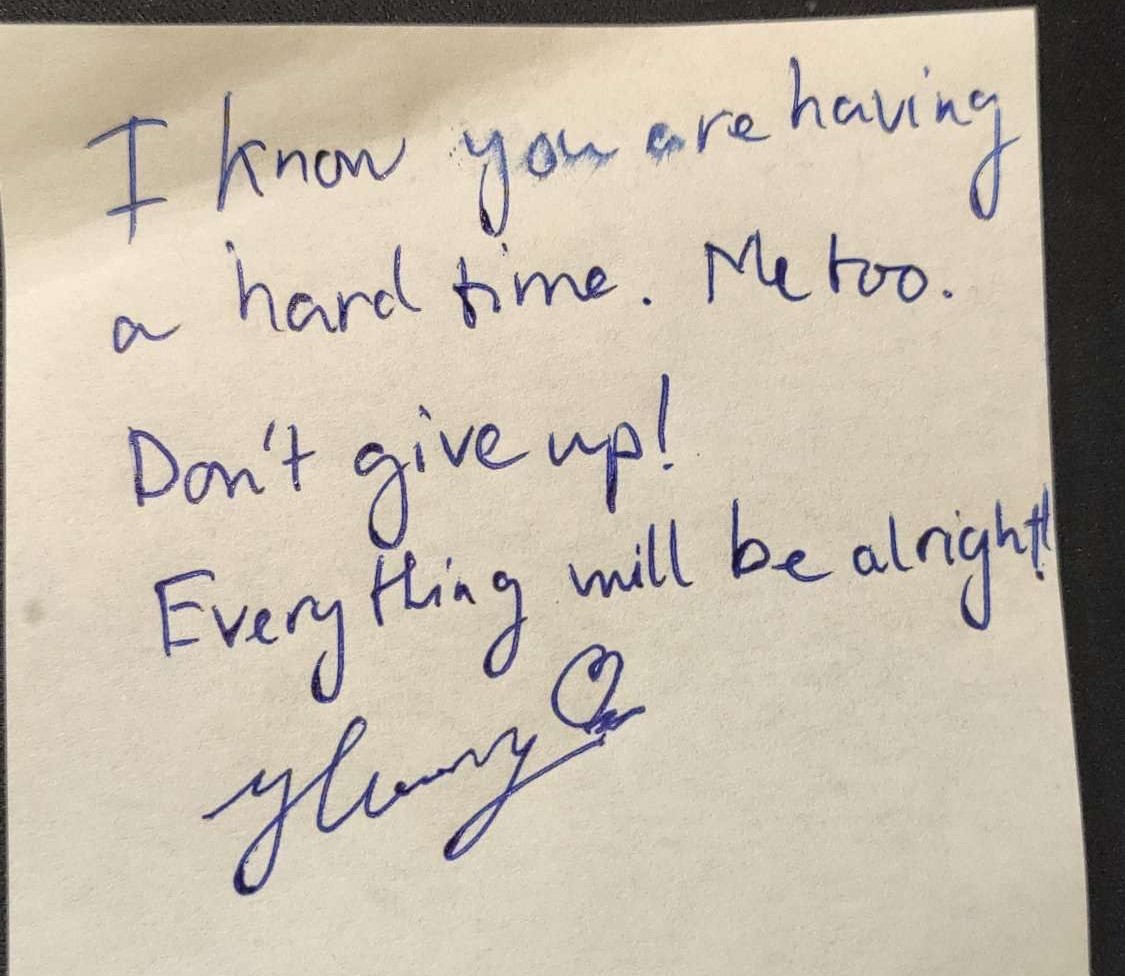 I know you are having
a hard time. Me too.
Don't give up!
Everything will be alright!